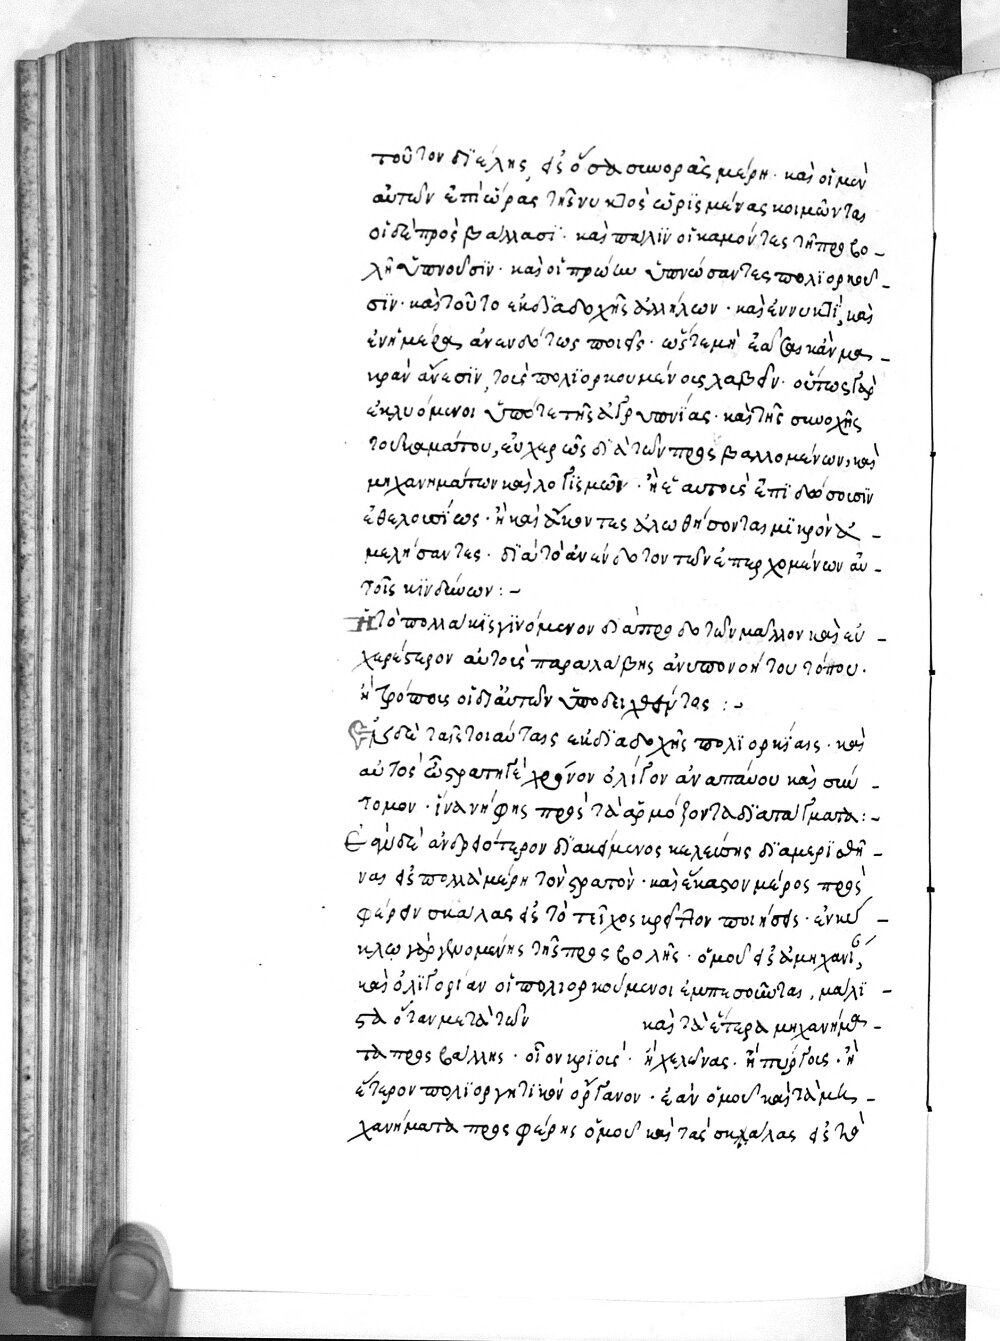 τοῦτον διέλης, εἰς ὅσα συνορᾶς μέρη· καὶ οἱ μὲν
αὐτῶν ἐπὶ ὥρας τῆς νυκτὸς ὡρϊσμένας κοιμῶνται
οἱ δὲ προσβάλλωσϊ· καὶ πάλϊν οἱ καμόντες τῆ προσβο-
λῆ ὑπνοῦσϊν· καὶ οἱ πρώτω ὑπνώσαντες πολϊορκοῦ-
σϊν· καὶ τοῦτο ἐκ δϊαδοχῆς ἀλλήλων· καὶ ἐν νυκτὶ, καὶ
ἐν ἡμέρα, ἀνενδότως ποιεῖς· ὥστε μὴ ἐᾶσαι κἂν μα-
κρὰν ἄνεσϊν, τοῖς πολϊορκουμένοις λαβεῖν· οὕτως γὰρ
ἐκλυόμενοι ὑπό τε τῆς ἀγρυπνίας· καὶ τῆς συνοχῆς
τοῦ καμάτου, εὐχερῶς διὰ τῶν προσβαλλομένων, καὶ
μηχανημάτων καὶ λογϊσμῶν· ἢ ἑαυτοὺς ἐπϊδώσουσϊν
ἐθελουσίως· ἢ καὶ ἄκοντες ἁλωθήσονται μϊκρὸν ἀ-
μελήσαντες· διὰ τὸ ἀνένδοτον τῶν ἐπερχομένων αὐ-
τοῖς κϊνδύνων:-
Ἢ τὸ πολλάκϊς γϊνόμενον διὰ προδοτῶν μᾶλλον καὶ εὐ-
χερέστερον αὐτοὺς παραλάβης ἀνυπονοήτου τόπου·
ἢ τρόποις οἱ δϊ αὐτῶν ὑποδειχθέντες:-
Ἐν δὲ ταῖς τοιαύταις ἐκ δϊαδοχῆς πολϊορκίαις· καὶ
αὐτὸς ὦ στρατηγὲ χρόνον ὀλίγον ἀναπαύου καὶ σύν-
τομον· ἵνα νήφης πρὸς τὰ ἁρμόζοντα δϊαπάγματα:-
Ἐὰν δὲ ἀνδρειότερον δϊακείμενος κελεύσης δϊαμερϊσθῆ-
ναι εἰς πολλὰ μέρη τὸν στρατὸν· καὶ ἕκαστον μέρος προσ
φέρειν σκάλας εἰς τὸ τεῖχος κρεῖττον ποιήσεις· ἐν κύ-
κλω γὰρ γενομένης τῆς προσβολῆς· ὁμοῦ εἰς ἀμηχανί,
καὶ ὀλϊγορίαν οἱ πολιορκούμενοι ἐμπεσοῦνται, μάλϊ-
στα ὅταν μετὰ τῶν καὶ τὰ ἕτερα μηχανήμα-
τα προσβάλλης· οἷον κριοὺς· ἢ χελώνας· ἢ πύργους· ἢ
ἕτερον πολϊοργητϊκὸν ὄργανον· ἐὰν ὁμοῦ καὶ τὰ μη-
χανήματα προσφέρης ὁμοῦ καὶ τὰς σκάλας εἰς τὸ